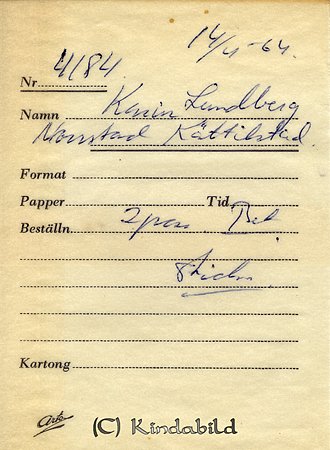 14/4-64.
Nr 4184
Namn Karin Lundberg
Norrstad Kättilstad.
Format
Papper Tid
Beställn. 2 pass. Bet.
Kartong
(C) Kindabild